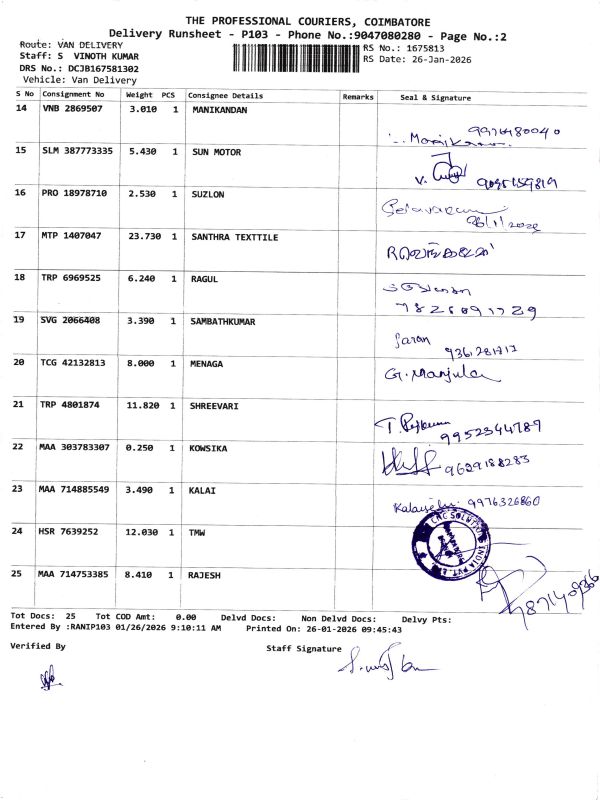 THE PROFESSIONAL COURIERS, COIMBATORE
Delivery Runsheet - P103 - Phone No.:9047080280 - Page No.:2
Route: VAN DELIVERY
RS No.: 1675813
Staff: S VINOTH KUMAR
RS Date: 26-Jan-2026
DRS No.: DCJB167581302
Vehicle: Van Delivery
S No Consignment No Weight PCS Consignee Details Remarks Seal & Signature
14 VNB 2869507 3.010 1 MANIKANDAN
15 SLM 387773335 5.430 1 SUN MOTOR
16 PRO 18978710 2.530 1 SUZLON
26/1/2026
17 MTP 1407047 23.730 1 SANTHRA TEXTTILE
18 TRP 6969525 6.240 1 RAGUL
19 SVG 2066408 3.390 1 SAMBATHKUMAR
20 TCG 42132813 8.000 1 MENAGA
G. Manjula
21 TRP 4801874 11.820 1 SHREEVARI
9952344789
22 MAA 303783307 0.250 1 KOWSIKA
9629188283
23 MAA 714885549 3.490 1 KALAI
9976326860
24 HSR 7639252 12.030 1 TMW
25 MAA 714753385 8.410 1 RAJESH
Tot Docs: 25 Tot COD Amt: 0.00 Delvd Docs: Non Delvd Docs: Delvy Pts:
Entered By :RANIP103 01/26/2026 9:10:11 AM Printed On: 26-01-2026 09:45:43
Verified By
Staff Signature